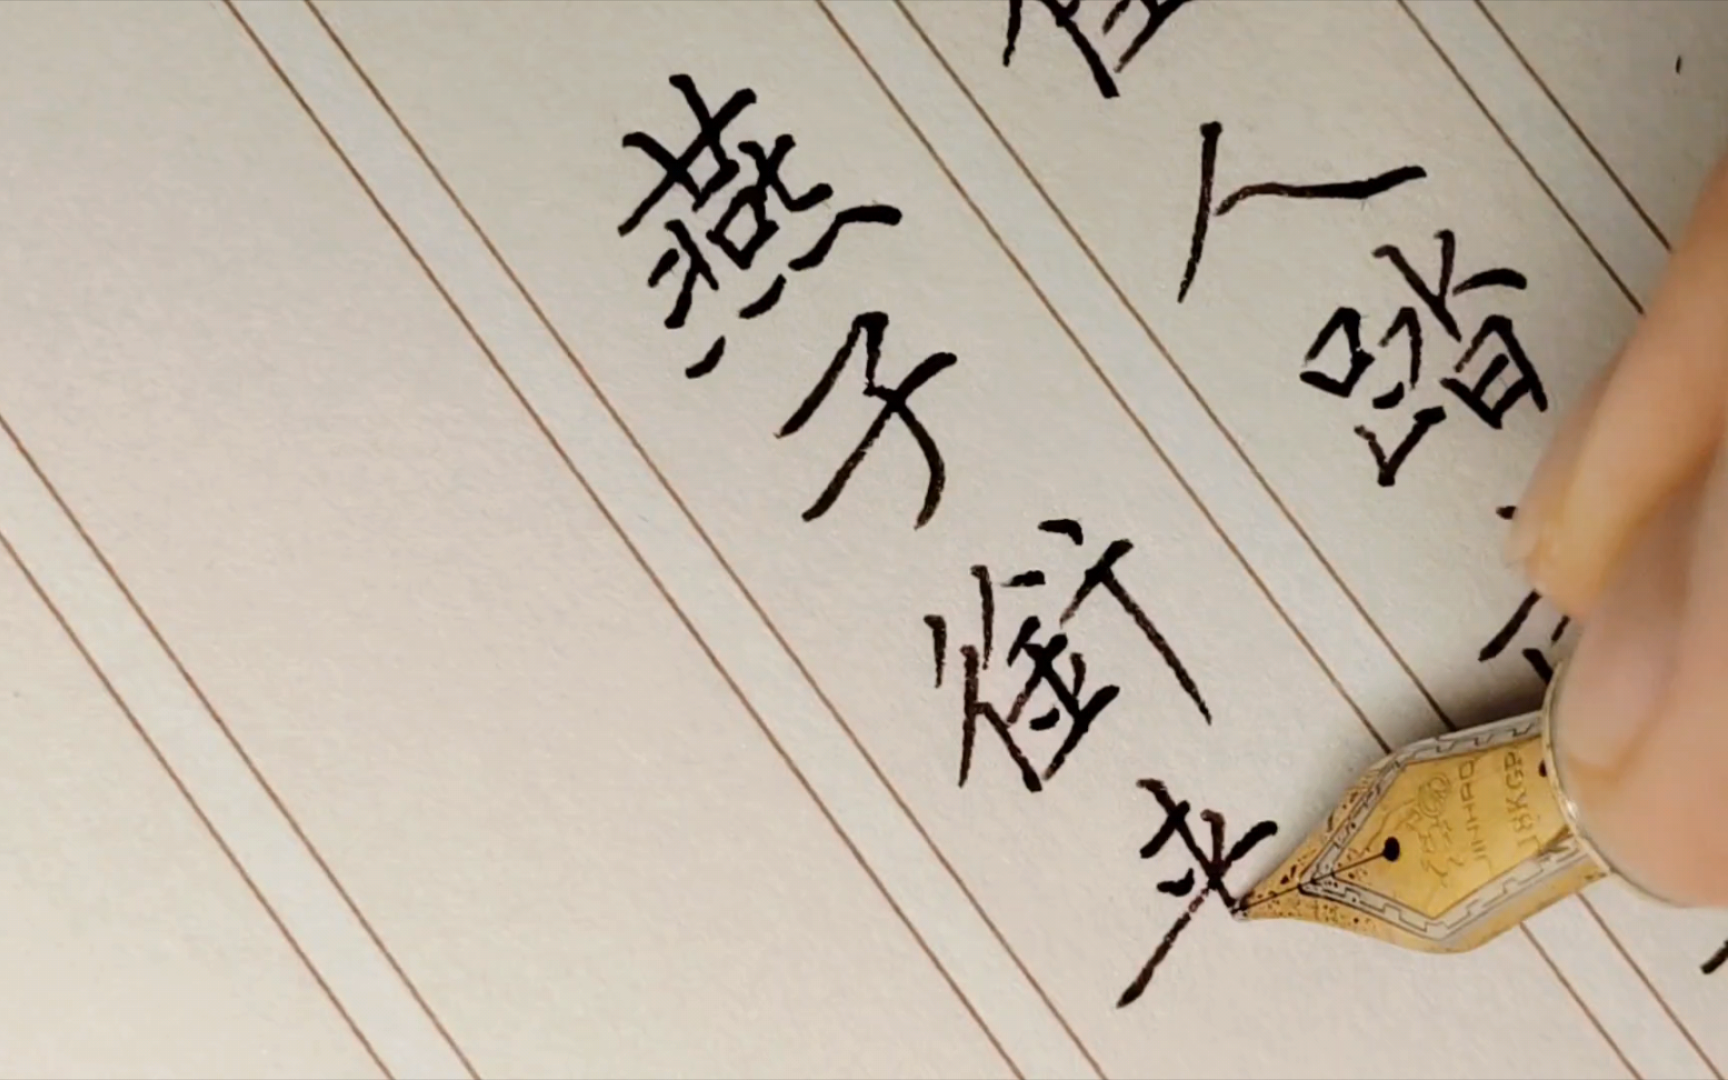 人踏
燕子銜来
JINHAO
18KGP